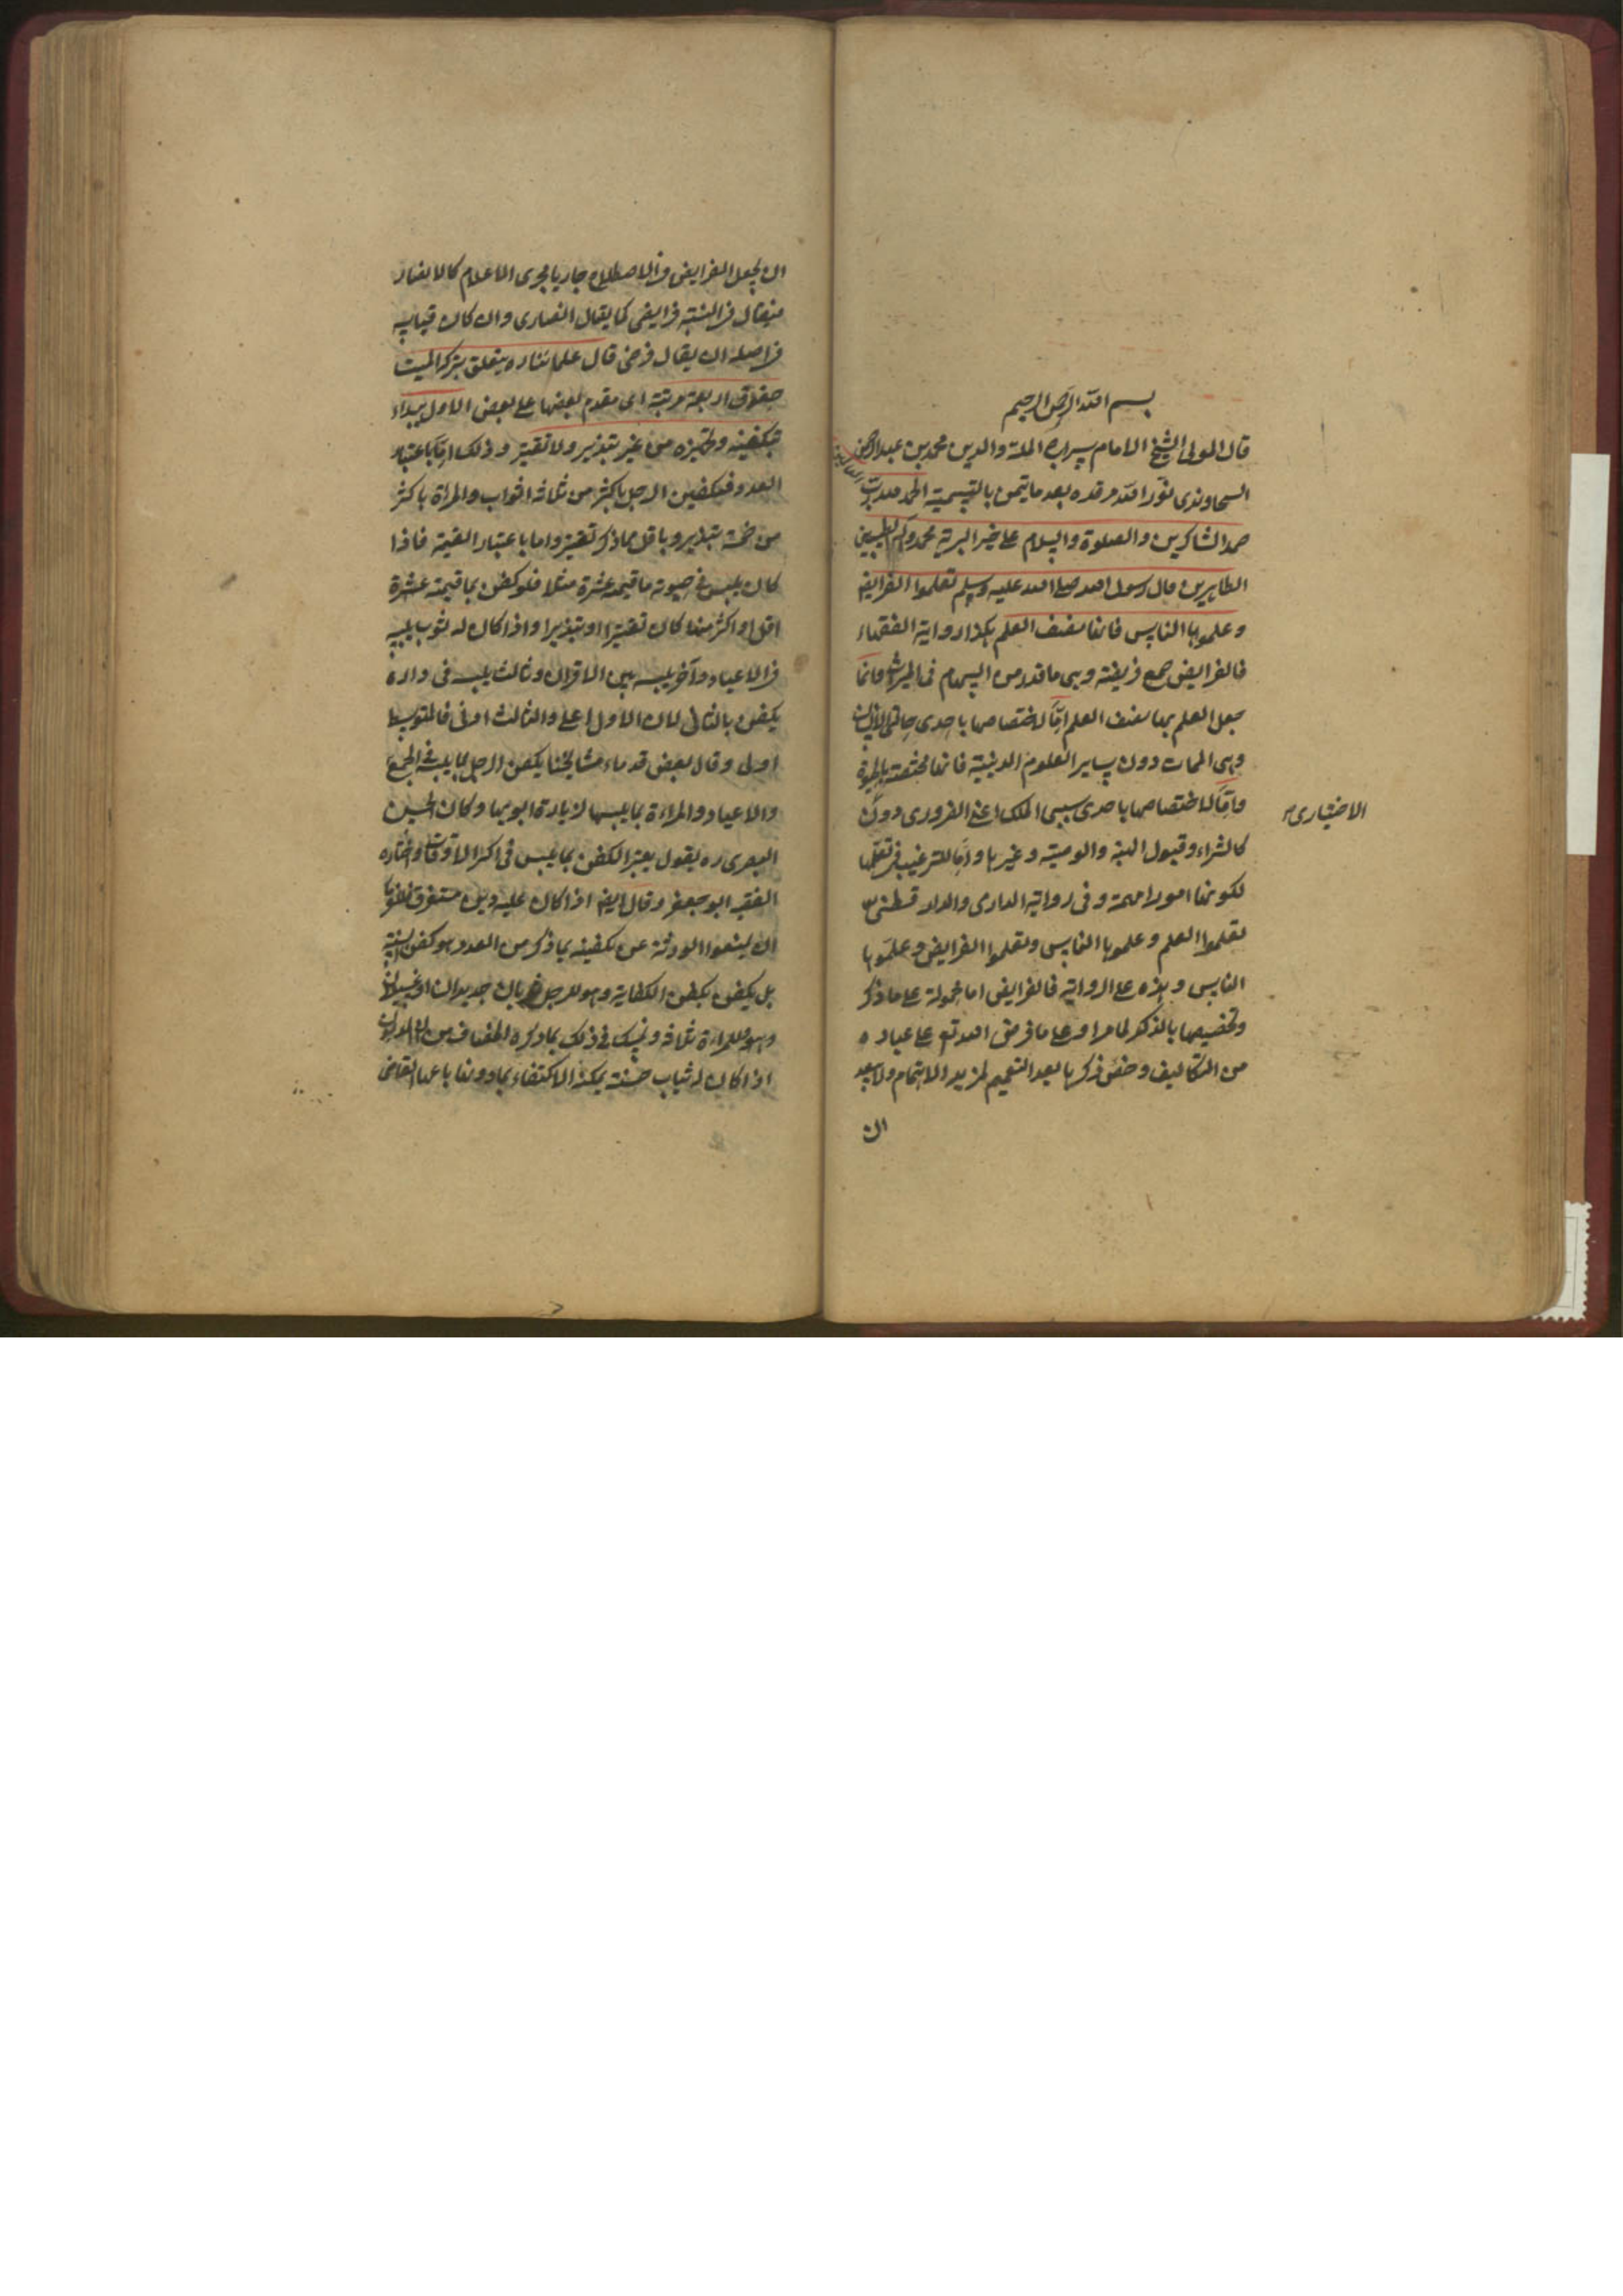 بسم الله الرحمن الرحيم
قال المولى الشيخ الامام سراج الملة والدين محمد بن عبد الرحمن
السجاوندى نور الله مرقده بعد ما تيمن بالتسمية الحمد لله رب
حمد الشاكرين والصلوة والسلام على خير البرية محمد وآله الطيبين
الطاهرين قال رسول الله صلى الله عليه وسلم تعلموا الفرايض
وعلموها الناس فانها نصف العلم هكذا رواية الفقهاء
فالفرايض جمع فريضة وهى ما قدر من السهام فى الميراث وانما
جعل العلم بها نصف العلم اما لاختصاصها باحدى حالتى الانسان
وهى الممات دون ساير العلوم الدينية فانها مختصة بالحيوة
واما لاختصاصها باحدى سببى الملك اعنى الضرورى دون
الاختيارى
كالشراء وقبول الهبة والوصية وغيرها واما للترغيب فى تعلمها
لكونها امورا مهمة وفى رواية الدارمى والدارقطنى
تعلموا العلم وعلموها الناس وتعلموا الفرايض وعلموها
الناس وهذه على الرواية فالفرايض اما محمولة على ما ذكر
وتخصيصها بالذكر لما مر او على ما فرض الله تع على عباده
من التكاليف وخص ذكرها بعد التعميم لمزيد الاهتمام ولا يبعد
ان
ان يجعل الفرايض فى الاصطلاح جاريا مجرى الاعلام كالانصار
فيقال فى النسبة فرايضى كما يقال انصارى وان كان قياسه
فى اصله ان يقال فرضى قال علمائنا ره يتعلق بتركة الميت
حقوق اربعة مرتبة اى مقدم بعضها على بعض الاول يبداء
بتكفينه وتجهيزه من غير تبذير ولا تقتير وذلك اما باعتبار
العدد فتكفين الرجل باكثر من ثلاثة اثواب والمراة باكثر
من خمسة تبذير وباقل مما ذكر تقتير واما باعتبار القيمة فاذا
كان يلبس فى حيوته ما قيمته عشرة مثلا فلو كفن بما قيمته عشرة
اقل او اكثر منها كان تقتيرا او تبذيرا واذا كان له ثوب يلبسه
فى الاعياد وآخر يلبسه بين الاقران وثالث يلبسه فى داره
يكفن بالثانى لان الاول اعلى والثالث ادنى فالمتوسط
اولى وقال بعض قدماء مشايخنا يكفن الرجل بما يلبسه فى الجمع
والاعياد والمراءة بما يلبسها لزيارة ابويها وكان الحسن
البصرى ره يقول يعتبر الكفن بما يلبس فى اكثر الاوقات واختاره
الفقيه ابو جعفر وقال ايضا اذا كان عليه دين مستغرق فللغرماء
ان يمنعوا الورثة عن تكفينه بما ذكر من العدد وهو كفن السنة
بل يكفن بكفن الكفاية وهو للرجل ثوبان جديدان او غسيلان
وهو للمراءة ثلاثة وتمسك فى ذلك بما ذكره الخصاف من ان المديون
اذا كان له ثياب حسنة يمكنه الاكتفاء بما دونها باعها القاضى